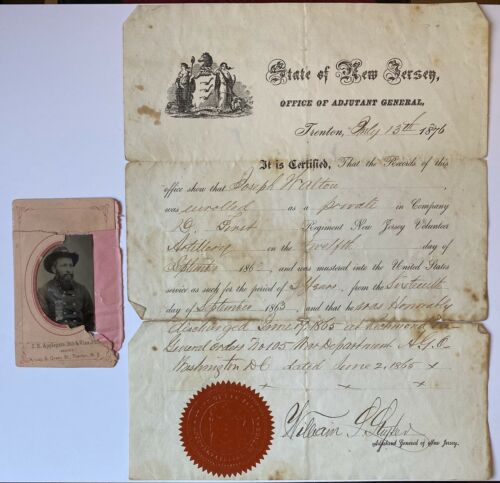 State of New Jersey,
OFFICE OF ADJUTANT GENERAL,
Trenton, July 13th 1876
It is Certified, That the Records of this
office show that Joseph Walton
was enrolled as a private in Company
D, First Regiment New Jersey Volunteer
Artillery on the twelfth day of
September 1863, and was mustered into the United States
service as such for the period of 3 years, from the Sixteenth
day of September 1863, and that he was Honorably
discharged June 17, 1865 at Richmond Va
General Orders No 105 War Department A.G.O.
Washington D.C. dated June 2, 1865 x x
William S. Stryker
Adjutant General of New Jersey.
J. R. Applegate,
Greene St., Trenton, N. J.